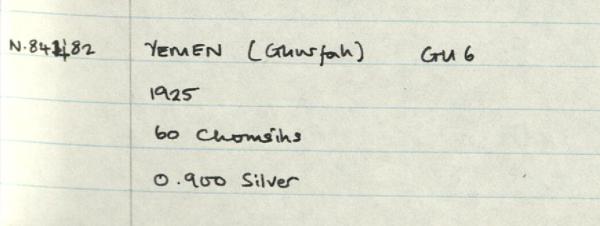 YEMEN (Ghurfah) GU 6
1925
60 Chomsihs
0.900 Silver